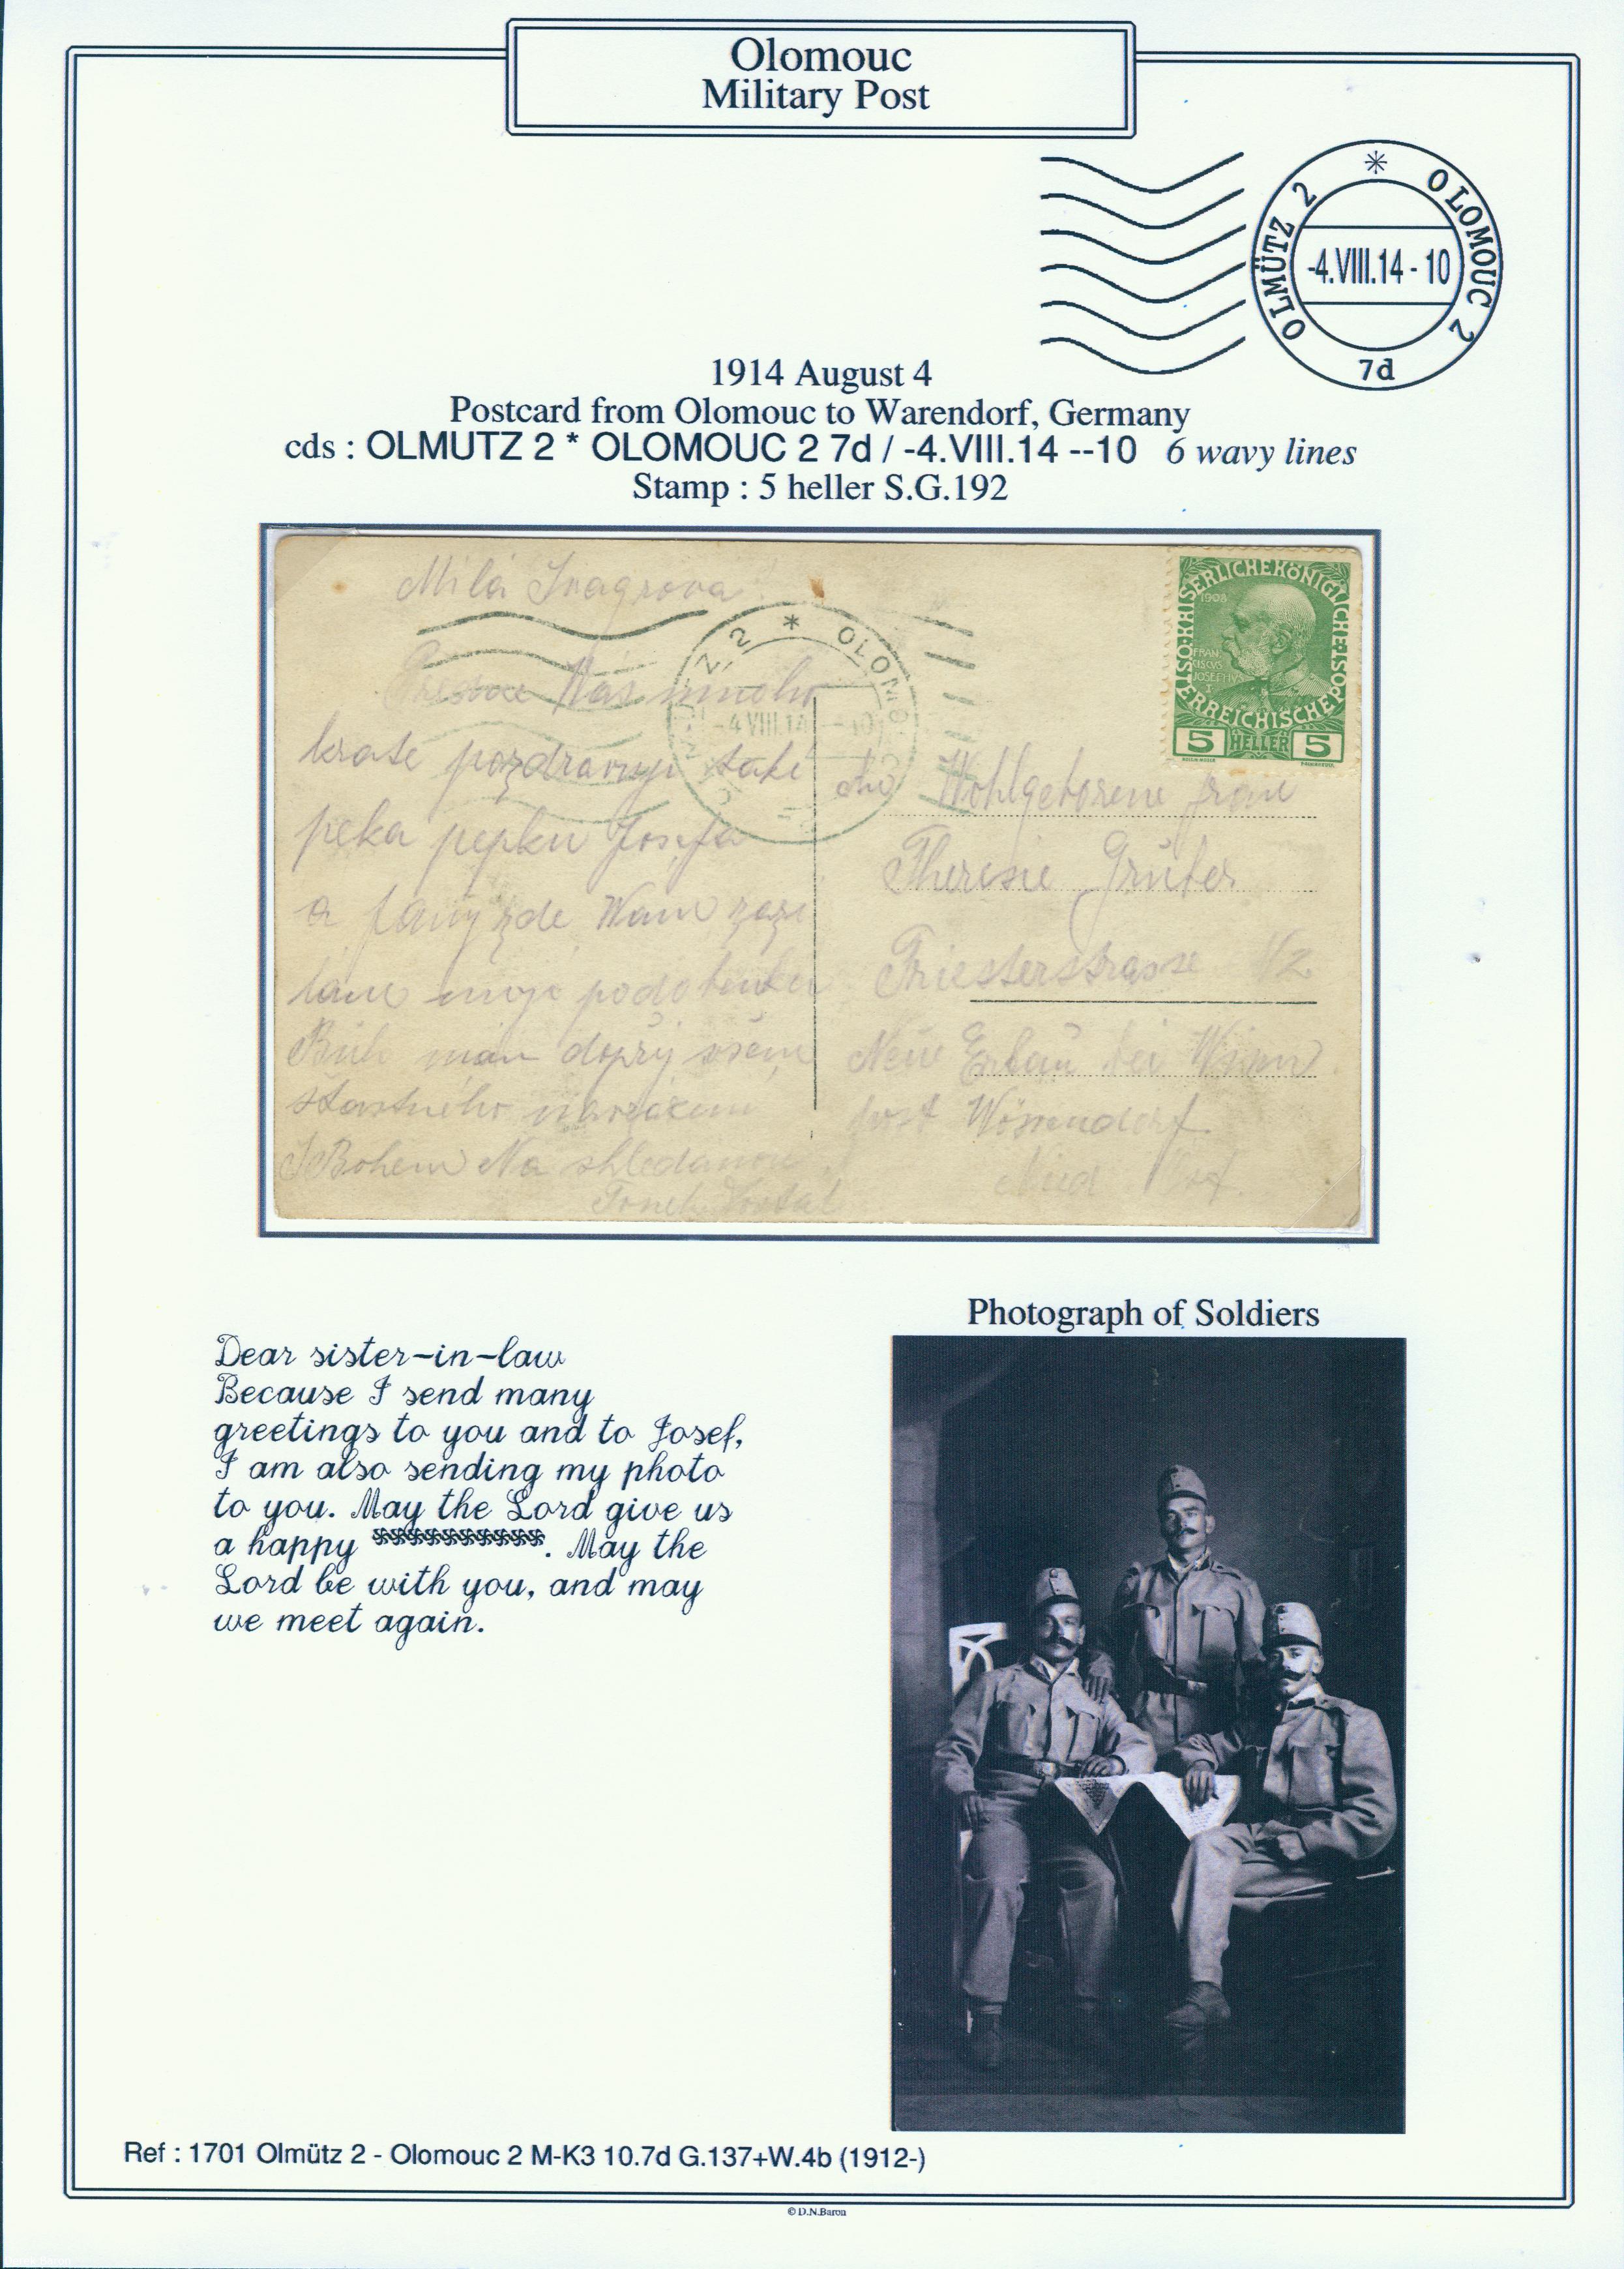 Olomouc
Military Post
OLMÜTZ 2 * OLOMOUC 2
-4.VIII.14-10
7d
1914 August 4
Postcard from Olomouc to Warendorf, Germany
cds : OLMUTZ 2 * OLOMOUC 2 7d / -4.VIII.14 --10 6 wavy lines
Stamp : 5 heller S.G.192
Milá Svagrova!
Vas mnoho
krate pozdravuji také
pepku Josefa
a zde Wam zaze
lam moje podobenku
Bůh nám dopřej všem
štastného
S Bohem Na shledanou
* OLOM
-4 VIII.14 -10
KAISERLICHEKÖNIGLICHE
ÖSTERREICHISCHE
1908
FRAN
CISCVS
JOSEPHVS
I
5 HELLER 5
Wohlgeborene Frau
Theresie Grüber
Triesterstrasse 1/2
Neu Erlau bei Wien
post Wösendorf
Nied
Dear sister-in-law
Because I send many
greetings to you and to Josef,
I am also sending my photo
to you. May the Lord give us
a happy . May the
Lord be with you, and may
we meet again.
Photograph of Soldiers
Ref : 1701 Olmütz 2 - Olomouc 2 M-K3 10.7d G.137+W.4b (1912-)
© D.N.Baron